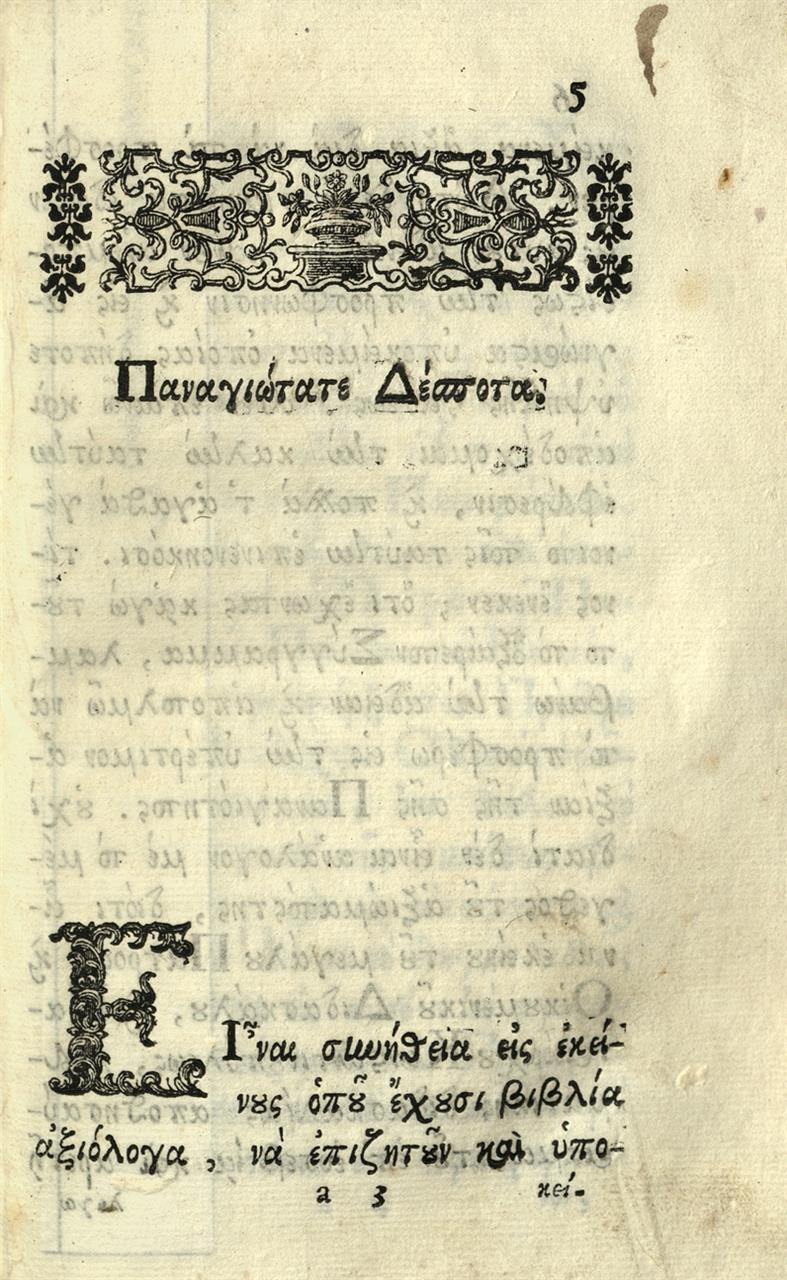 5
Παναγιώτατε Δέσποτα,
ΕΙ῏ναι συνήθεια εἰς ἐκεί-
νȣς ὁπȣ῀ ἔχȣσι βιβλία
ἀξιόλογα, νὰ ἐπιζητȣ῀ν καὶ ὑπο-
a 3 κεί-